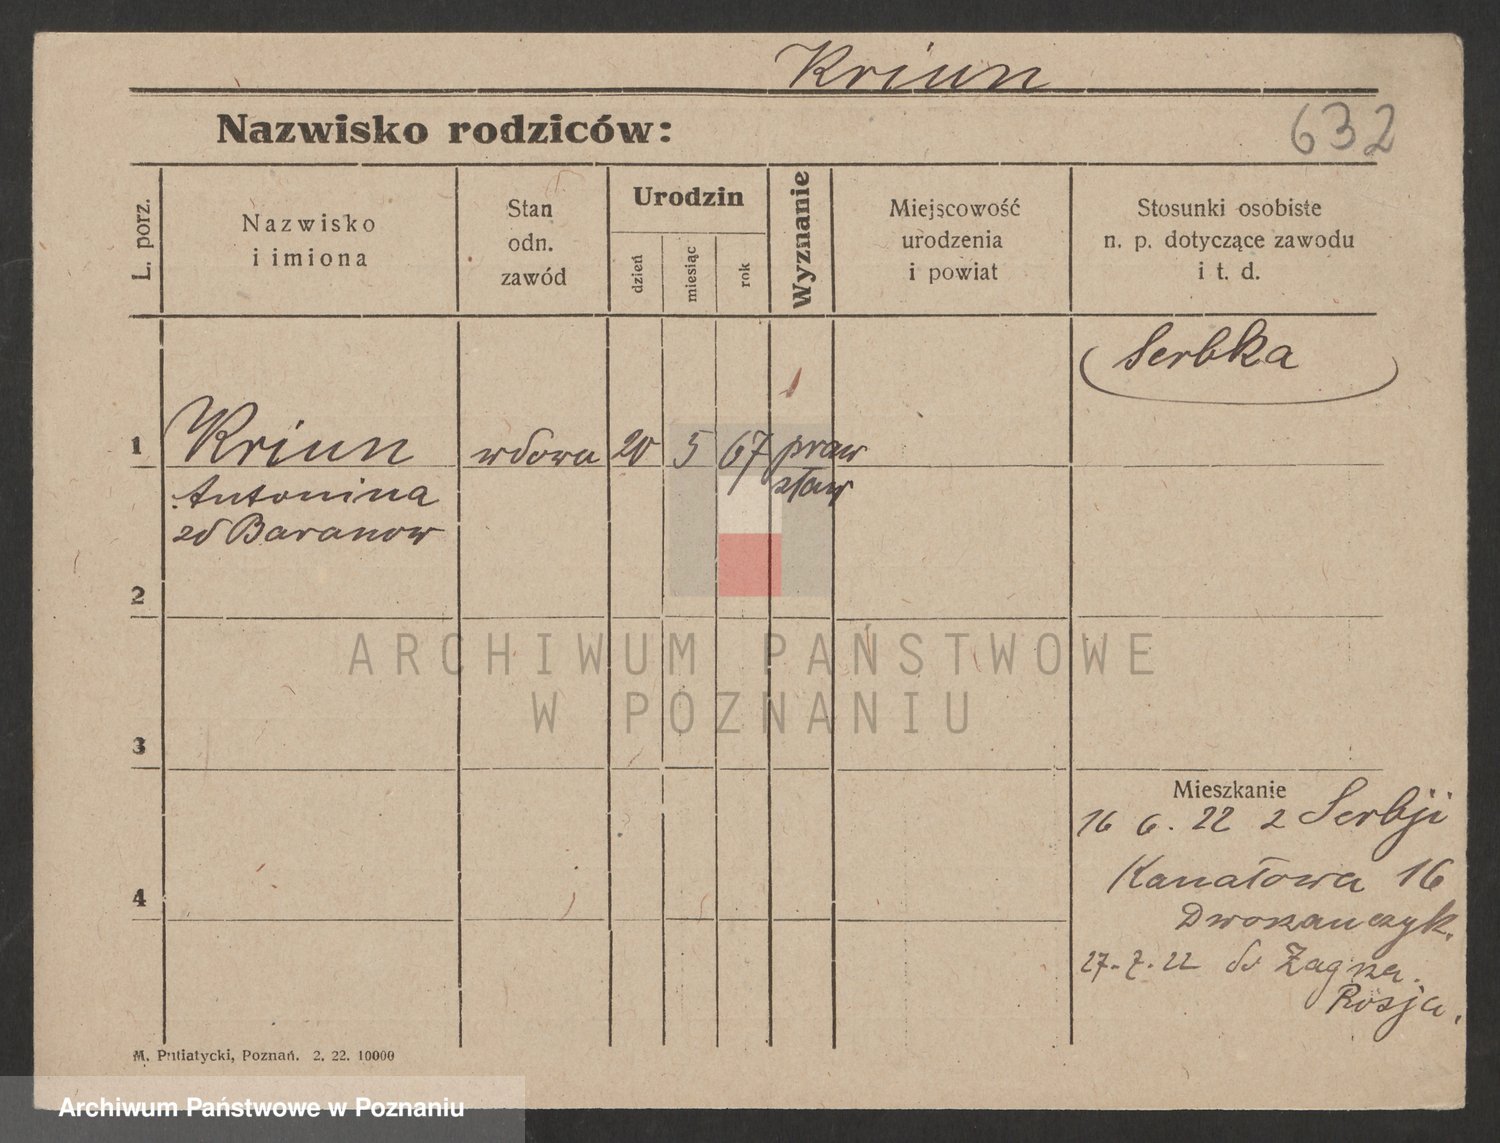 Kriun
Nazwisko rodziców:
632
L. porz.
Nazwisko
i imiona
Stan
odn.
zawód
Urodzin
dzień
miesiąc
rok
Wyznanie
Miejscowość
urodzenia
i powiat
Stosunki osobiste
n. p. dotyczące zawodu
i t. d.
Serbka
1
Kriun
wdowa
20
5
67
praw
sław
Antonina
zd Baranow
2
ARCHIWUM PAŃSTWOWE
W POZNANIU
3
Mieszkanie
16 6. 22 z Serbji
4
Kanałowa 16
27. 7. 22 do
Rosja.
M. Putiatycki, Poznań. 2. 22. 10000
Archiwum Państwowe w Poznaniu